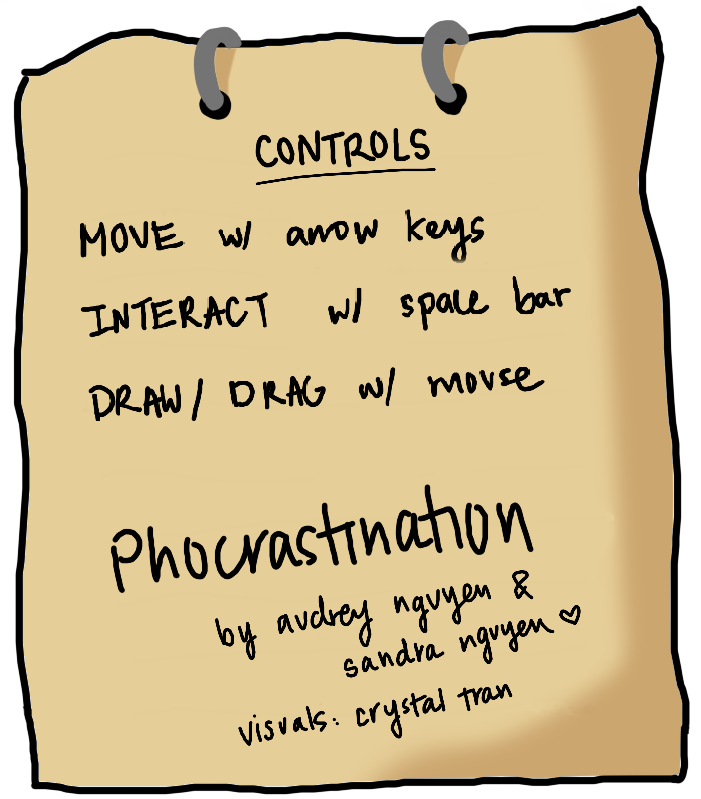 CONTROLS
MOVE w/ arrow keys
INTERACT w/ space bar
DRAW/ DRAG w/ mouse
Phocrastination
by audrey nguyen &
sandra nguyen ♡
visuals: crystal tran